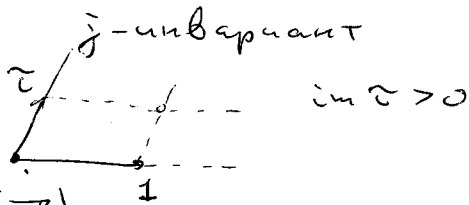 j-инвариант
τ
im τ > 0
1